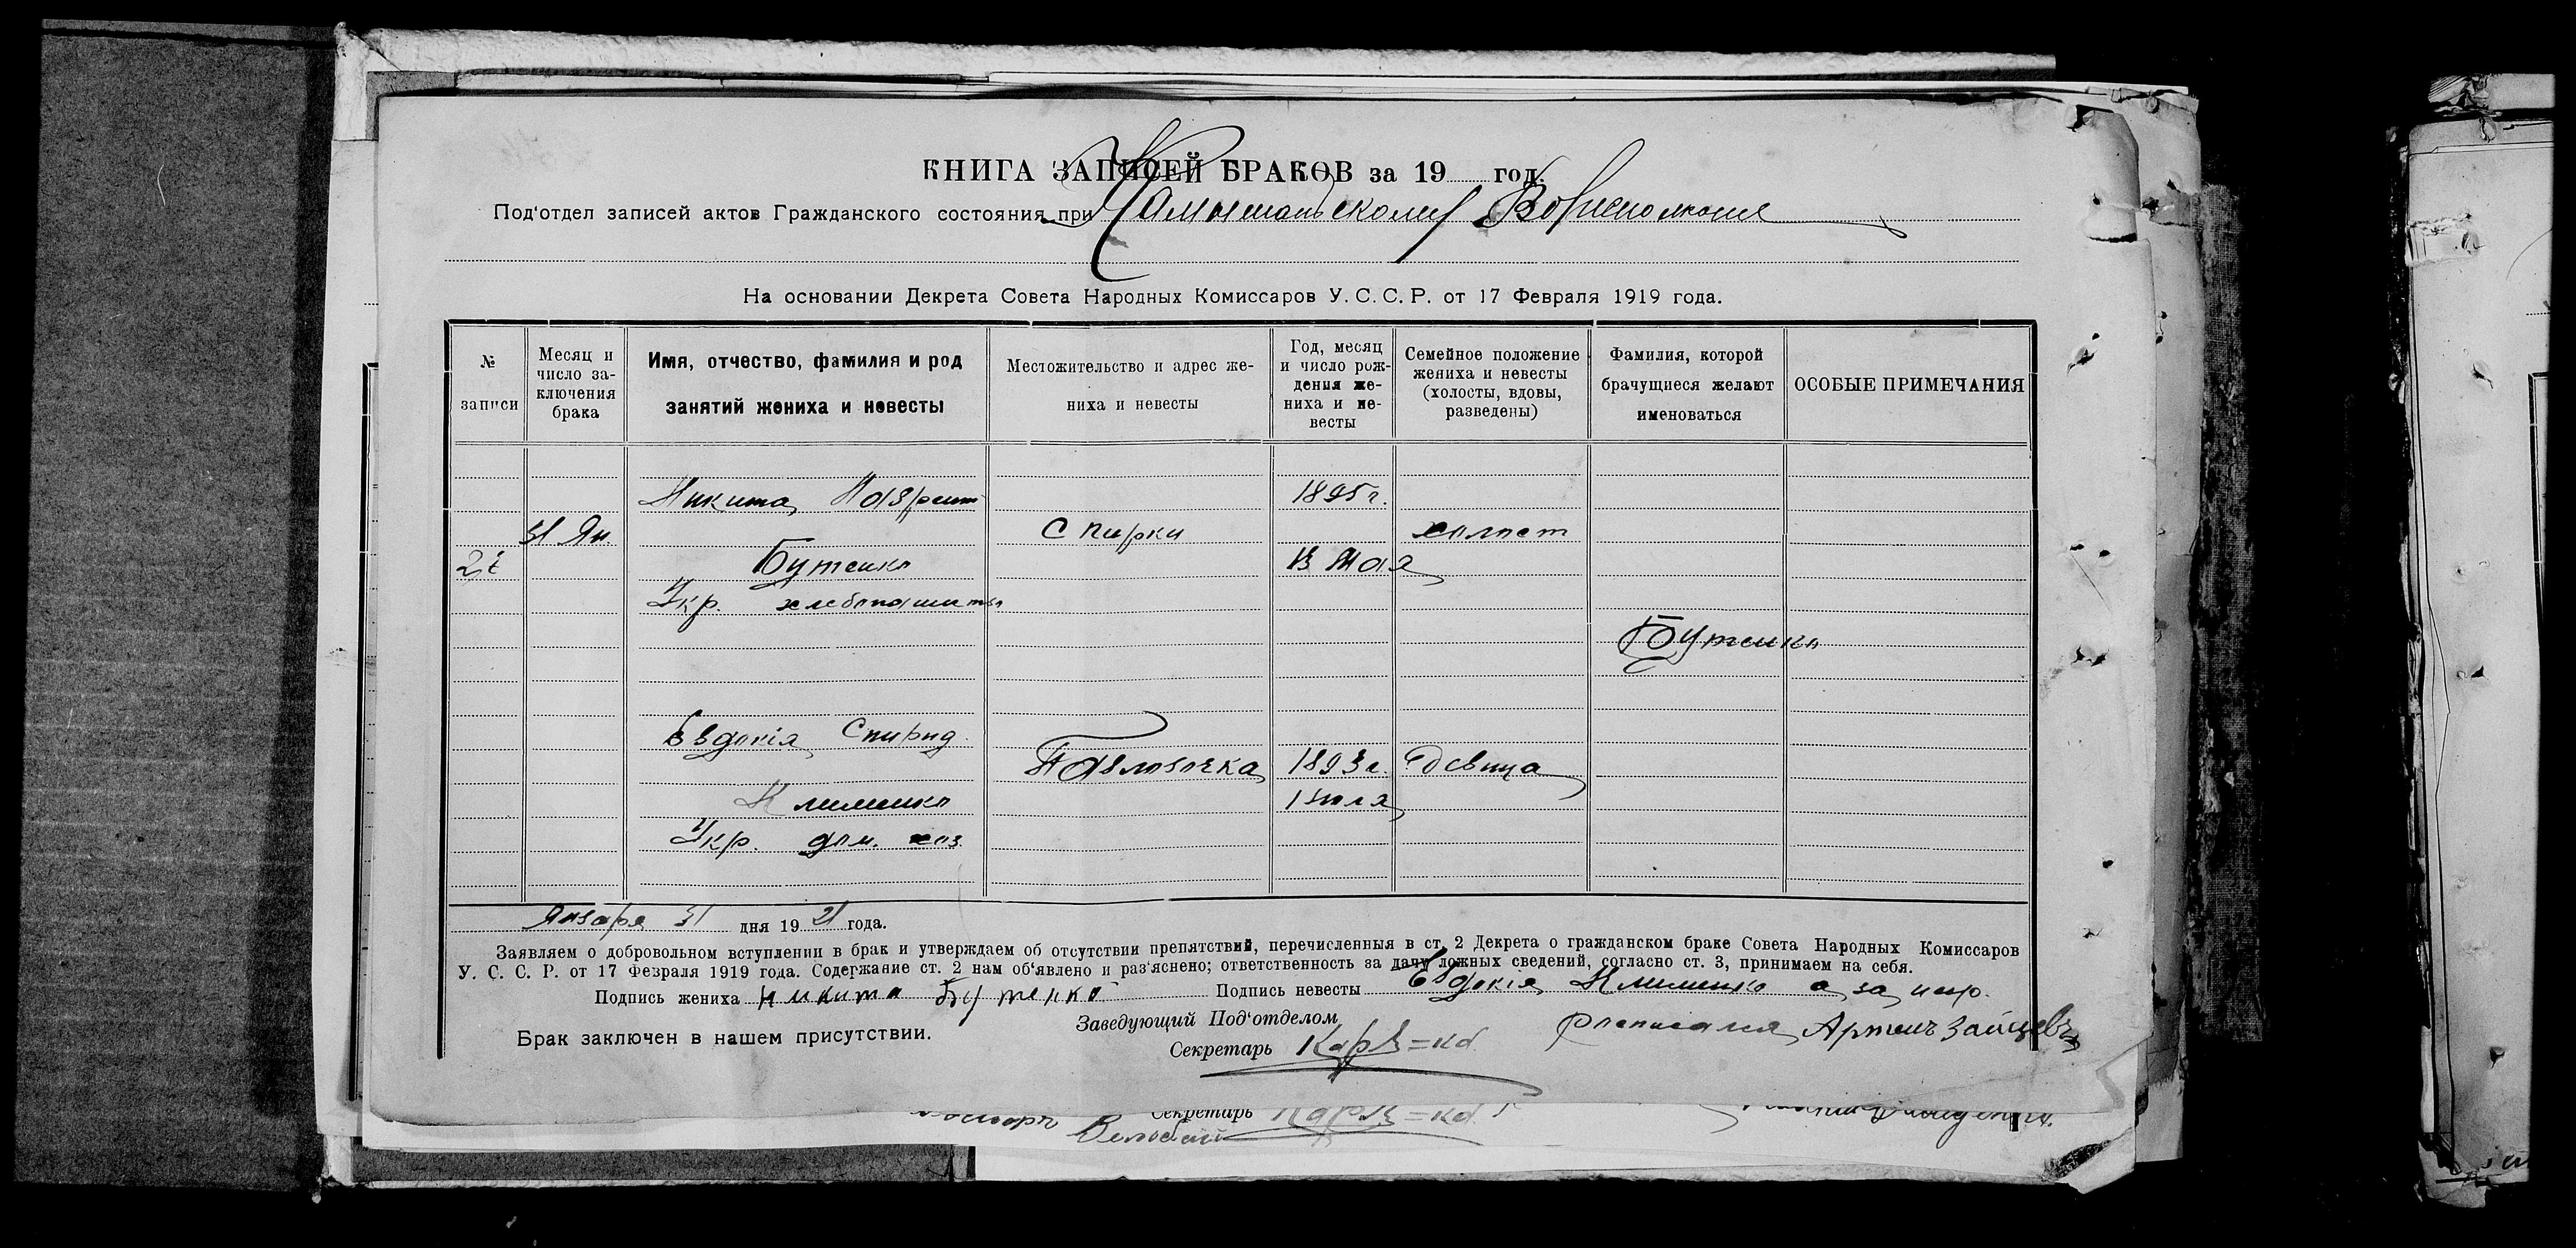 КНИГА ЗАПИСЕЙ БРАКОВ за 19 год.
Под'отдел записей актов Гражданского состояния при Камышанском Волисполкоме
На основании Декрета Совета Народных Комиссаров У. С. С. Р. от 17 Февраля 1919 года.
№ записи
Месяц и число заключения брака
Имя, отчество, фамилия и род занятий жениха и невесты
Местожительство и адрес жениха и невесты
Год, месяц и число рождения жениха и невесты
Семейное положение жениха и невесты (холосты, вдовы, разведены)
Фамилия, которой брачущиеся желают именоваться
ОСОБЫЕ ПРИМЕЧАНИЯ
Никита Лаврент 1895 г.
31 Ян. с Пирки холост
Бутенко 13 Мая
Укр. хлебопашеств
Бутенко
Евдокія Спирид.
Павловка 1893 г. девица
Клименко 1 июля
Укр. дом. хоз.
Января 31 дня 1921 года.
Заявляем о добровольном вступлении в брак и утверждаем об отсутствии препятствий, перечисленныя в ст. 2 Декрета о гражданском браке Совета Народных Комиссаров
У. С. С. Р. от 17 Февраля 1919 года. Содержание ст. 2 нам об'явлено и раз'яснено; ответственность за дачу ложных сведений, согласно ст. 3, принимаем на себя.
Подпись жениха Никита Бутенко Подпись невесты Евдокія Клименко а за негр.
Заведующий Под'отделом росписался Артем Зайцевъ
Брак заключен в нашем присутствии.
Секретарь
Секретарь